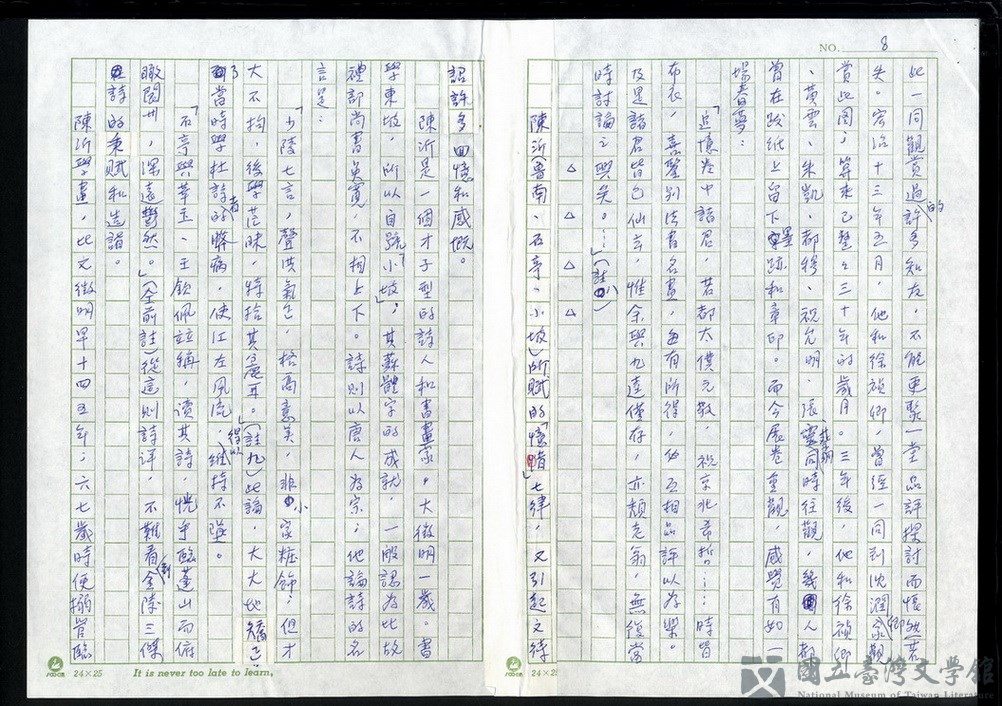 NO. 8
此一同觀賞過的許多知友,不能更聚一堂品評探討而悵然若
失。宏治十三年五月,他和徐禎卿,曾經一同到沈潤卿家觀
賞此圖;算來已整整三十年的歲月。三年後,他和徐禎卿
、黃雲、朱凱、都穆、祝允明、張靈同時往觀,幾人都
曾在跋紙上留下墨跡和章印。而今展卷重觀,感覺有如一
場春夢:
「追憶卷中諸君,若都太僕元敬,祝京兆希哲……時皆
布衣,喜鑒別法書名畫,每有所得,必互相品評以為樂。
及是諸君皆已仙去,惟余與九逵僅存,亦頹老翁,無復當
時討論之興矣。……」(註八)
△ △ △ △
陳沂(魯南、石亭、小坡)所賦的「憶昔」七律,又引起文待
詔許多回憶和感慨。
陳沂是一個才子型的詩人和書畫家。大徵明一歲。書
學東坡,所以自號「小坡」;其蘇體字的成就,一般認為比故
禮部尚書吳寬,不相上下。詩則以唐人為宗;他論詩的名
言是:
「少陵七言,聲洪氣色,格高意美,非小家粧飾;但才
大不拘,後學茫昧,特拾其粗耳。」(註九)此論,大大地矯正
了當時學杜詩者的弊病,使江左風流,得以維持不墜。
「石亭與華玉、王欽佩並稱,讀其詩,恍乎臨蓬山而俯
瞰閬州,深遠鬱然。」(仝前註)從這則詩評,不難看到金陵三傑
詩的秉賦和造詣。
陳沂學畫,比文徵明早十四五年;六七歲時便搦管臨
24×25
It is never too late to learn.
24×25
國立臺灣文學館
National Museum of Taiwan Literature